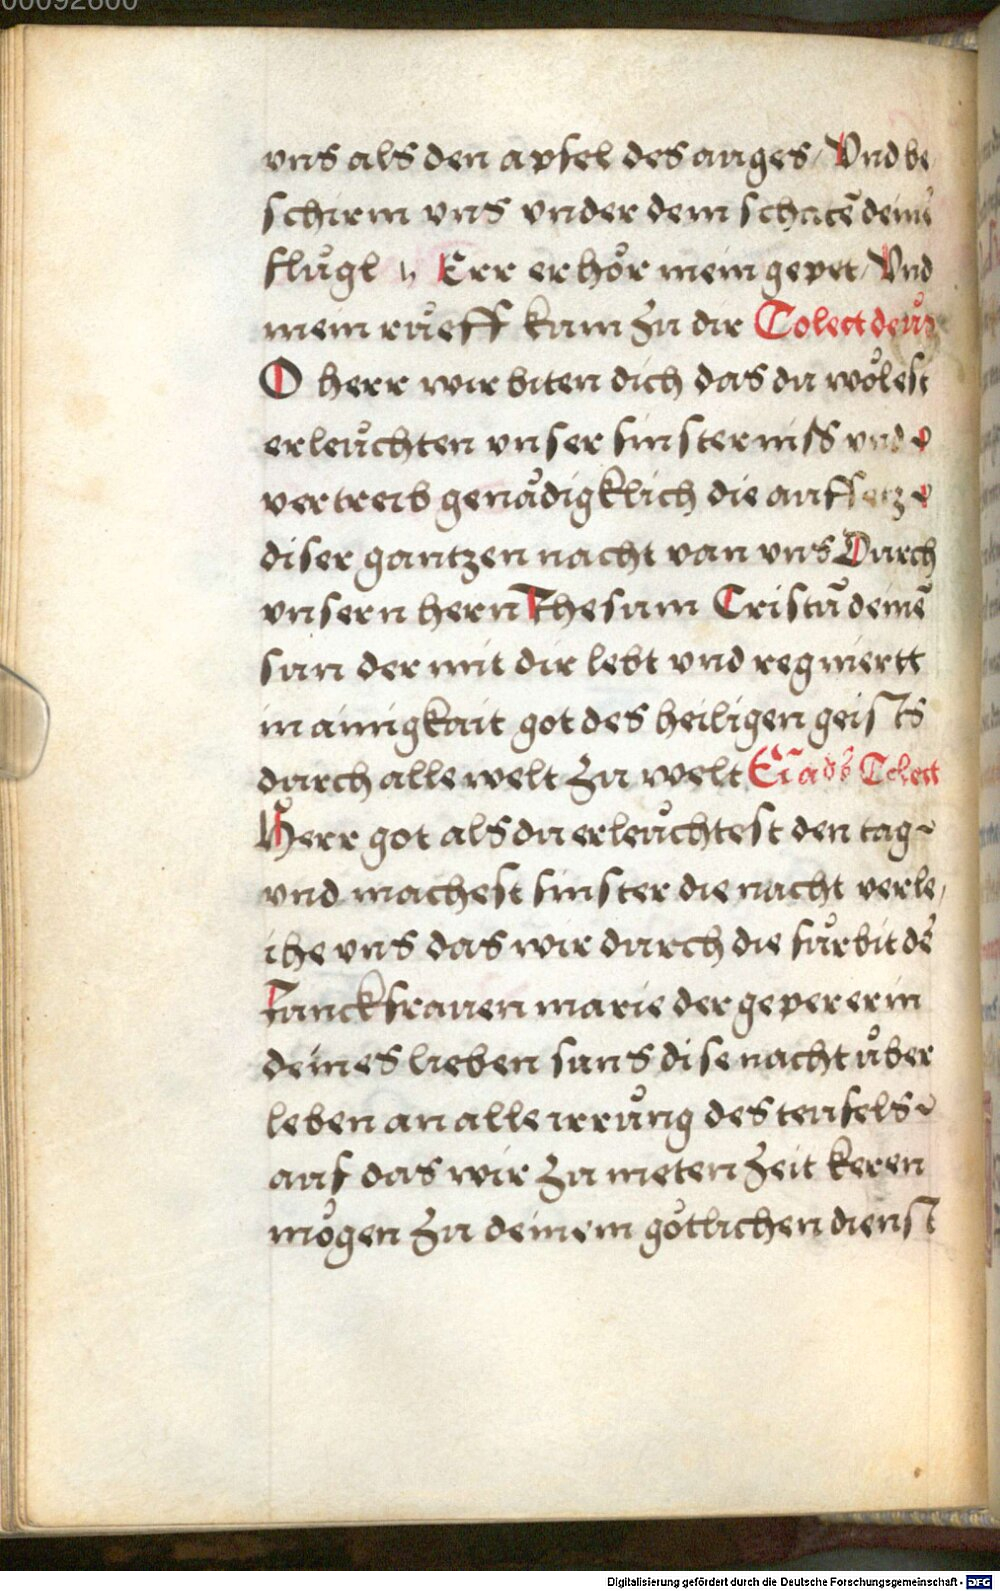 00092600
vns als den apfel des auges / Vnd be
schirm vns vnder dem schatē deinē
flu̇gl Err erho̊r mein gepet / Vnd
mein ru̇eff kum zu dir Colect deus
O herr wir biten dich das du wo̊lest
erleu̇chten vnser finsternisß vnd
vertreib genȧdigklich die auffsetz
diser gantzen nacht van vns Durch
vnsern hern Jhesum Cristū deinē
sun der mit dir lebt vnd regniertt
in ainigkait got des heiligen geists
durch alle welt zu welt Colect
Herr got als du erleu̇chtest den tag
vnd machest finster die nacht verle
ihe vns das wir durch die fu̇rbit dē
Junckfrauen marie der gepererin
deines lieben suns dise nacht u̇ber
leben an alle irru̇ng des teufels
auf das wir zu meten zeit keren
mo̊gen zu deinem go̊tlichen dienst
Digitalisierung gefördert durch die Deutsche Forschungsgemeinschaft - DFG